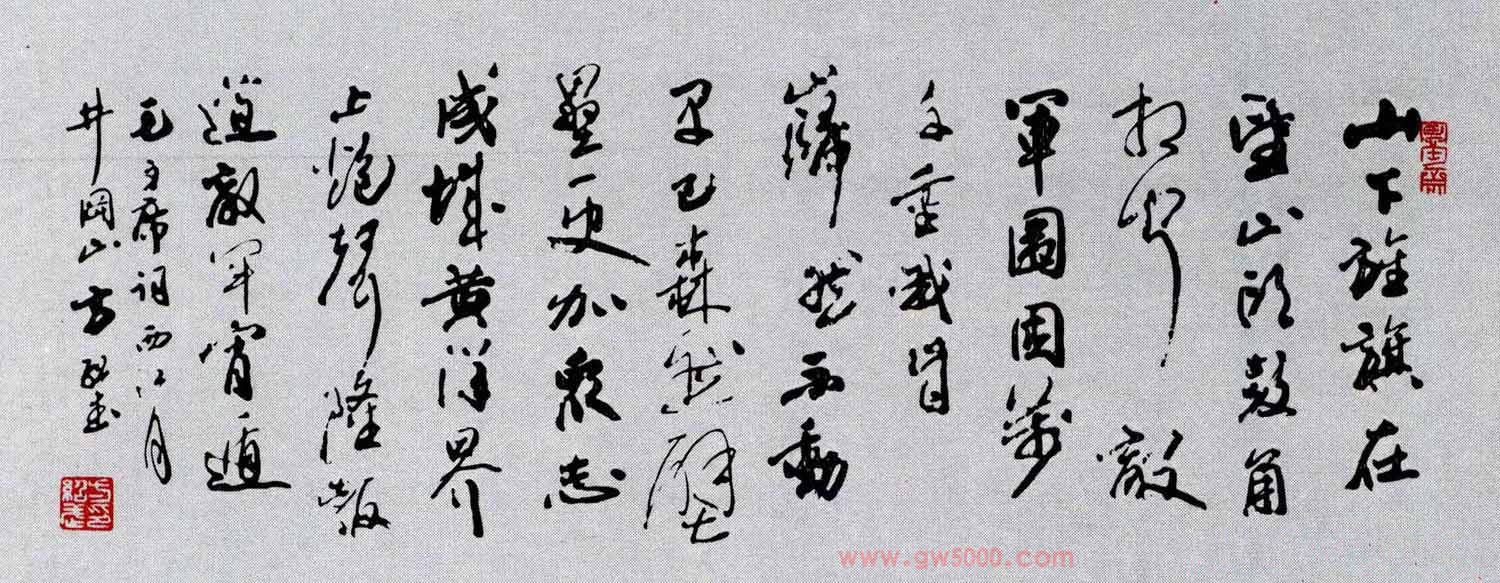 山下旌旗在
望山頭鼓角
相聞敵
軍圍困萬
千重我自
巋然不動
早已森嚴壁
壘更加衆志
成城黄洋界
上炮聲隆報
道敵軍宵遁
毛主席詞西江月
井岡山方紹武
www.gw5000.com